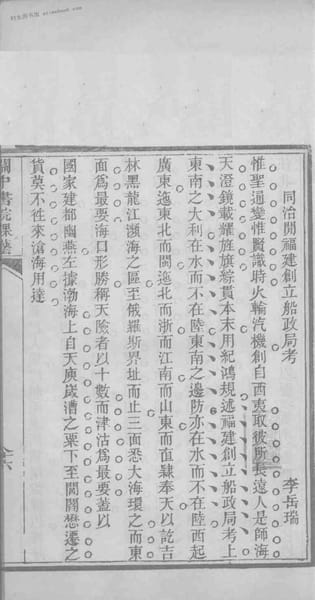 同治閒福建創立船政局考
李岳瑞
惟聖通變惟賢識時火輪汽機創自西夷取彼所長遠人是師海
天澄鏡載耀旌旗綜貫本末用紀鴻規述福建創立船政局考上
東南之大利在水而不在陸東南之邊防亦在水而不在陸西起
廣東迤東北而閩迤北而浙而江南而山東而直隸奉天以訖吉
林黑龍江瀕海之區至俄羅斯界址而止三面悉大海環之而東
面爲最要海口形勝稱天險者以十數而津沽爲最要蓋以
國家建都幽燕左據渤海上自天庾歲漕之粟下至閩閭懋遷之
貨莫不徃來滄海用達
關中書院課藝